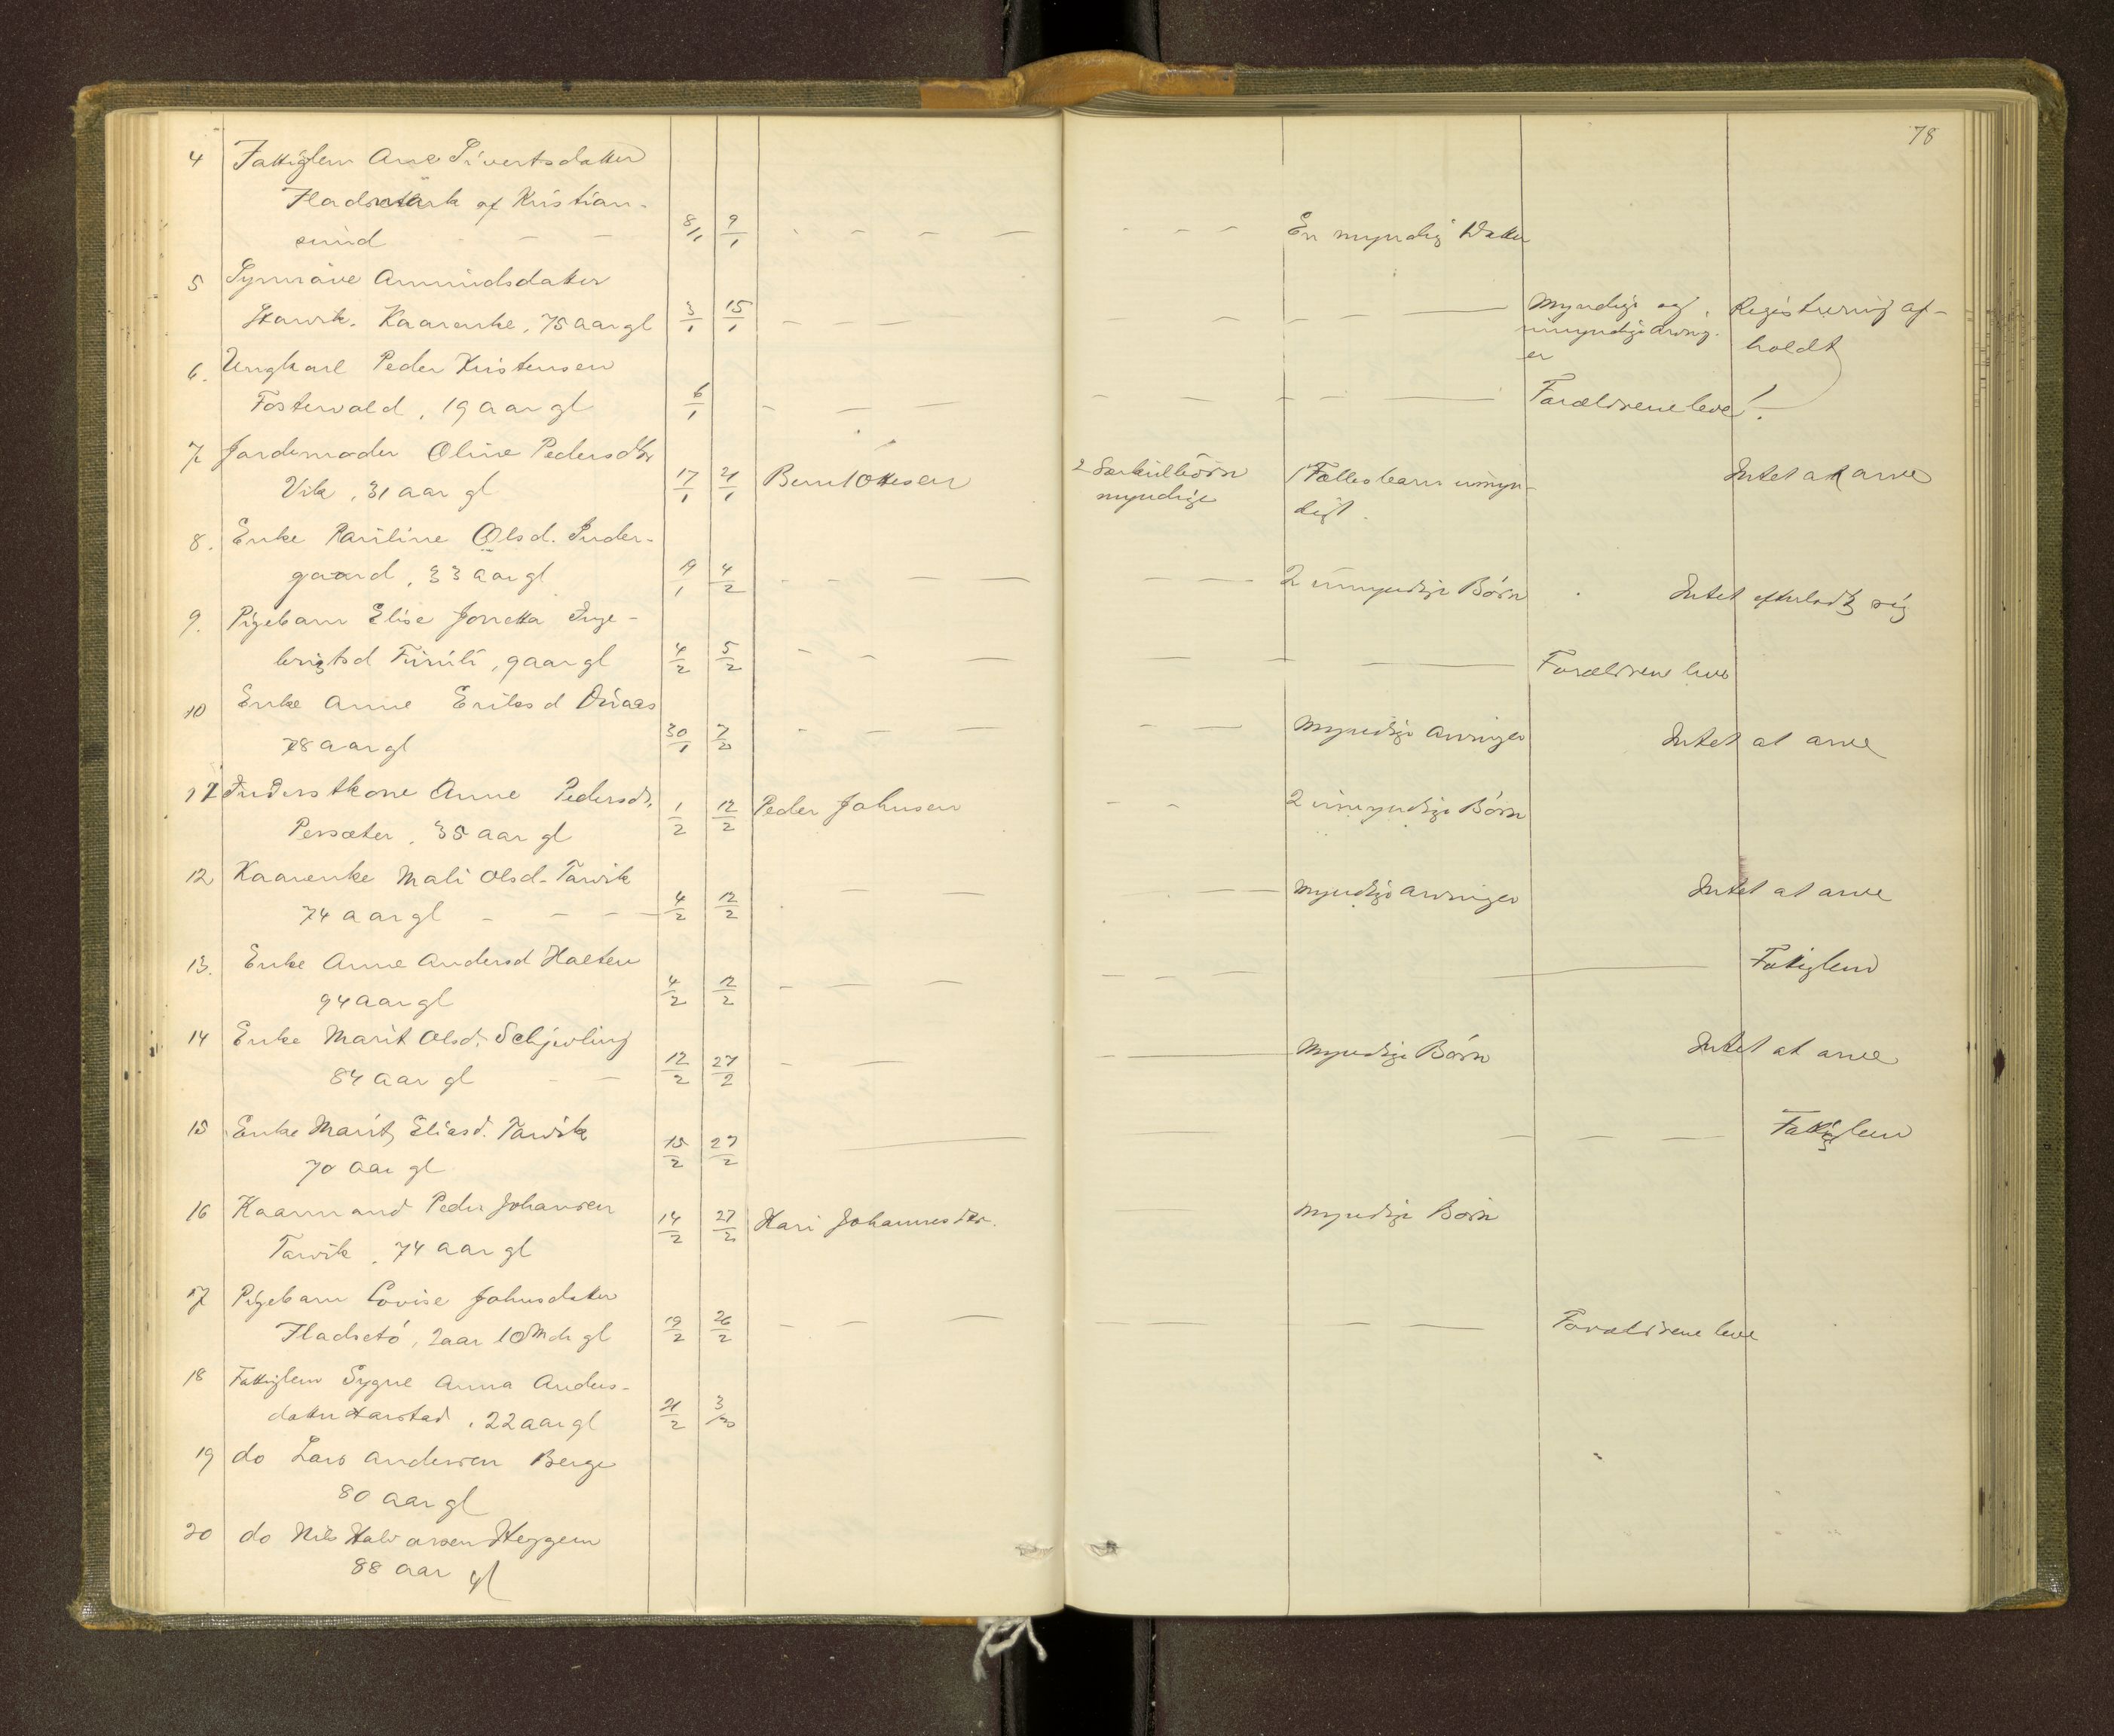 78
4 Fattiglem Ane Sivertsdatter
Fladsetmark af Kristian-
sund 8/1 9/1 En myndig Datter
5 Synnøve Amundsdatter
Kaarenke, 75 aar gl 3/1 15/1 Myndige og Registrering af-
umyndige arving- holdt
er
6. Ungkarl Peder Kristensen
Fostervold, 19 aar gl 6/1 Forældrene leve!
7 Jordemoder Oline Pedersdtr
Vik, 31 aar gl 17/1 21/1 Bernt Ottesen 2 Særkulbörn 1 Fællesbarn umyn- Intet at arve
myndige digt.
8. Enke Olsd. Inder-
gaard, 33 aar gl 19/1 4/2 2 umyndige Börn Intet efterladt sig
9. Pigebarn Elise Jonetta Inge-
brigtsd Furuli, 9 aar gl 4/2 5/2 Forældrene leve
10 Enke Anne Eriksd
78 aar gl 30/1 7/2 Myndige Arvinger Intet at arve
11 Inderstkone Anne Pedersdr.
Persæter, 35 aar gl 1/2 12/2 Peder Johnsen 2 umyndige Börn
12 Kaarenke Mali Olsd. Tarvik
74 aar gl 4/2 12/2 Myndige arvinger Intet at arve
13. Enke Anne Andersd Holten
94 aar gl 4/2 12/2 Fatiglem
14 Enke Marit Olsd. Schjevling
84 aar gl 12/2 27/2 Myndige Börn Intet at arve
15 Enke Marit Eliasd. Tarvik
70 aar gl 15/2 27/2 Fattiglem
16 Kaarmand Peder Johansen
Tarvik, 74 aar gl 14/2 27/2 Kari Johannesdtr. Myndige Börn
17 Pigebarn Lovise Johnsdatter
Fladsetö, 2 aar 10 Mdr gl 19/2 26/2 Forældrene leve
18 Fattiglem Sygne Anna Anders-
datter Harstad, 22 aar gl 21/2
19 do Lars Andersen Berge
80 aar gl
20 do Nils Halvorsen Heggem
88 aar gl